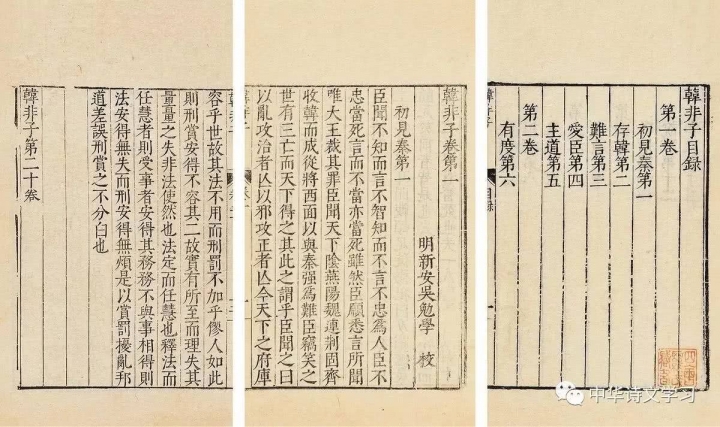 韓非子目録
第一卷
初見秦第一
存韓第二
難言第三
愛臣第四
主道第五
第二卷
有度第六
目録
韓非子卷第一
明新安吳勉學 校
初見秦第一
臣聞不知而言不智知而不言不忠爲人臣不
忠當死言而不當亦當死雖然臣願悉言所聞
唯大王裁其罪臣聞天下陰燕陽魏連荆固齊
收韓而成從將西面以與秦强爲難臣竊笑之
世有三亡而天下得之其此之謂乎臣聞之曰
以亂攻治者亾以邪攻正者亾今天下之府庫
容乎世故其法不用而刑罰不加乎僇人如此
則刑賞安得不容其二故實有所至而理失其
量量之失非法使然也法定而任慧也釋法而
任慧者則受事者安得其務務不與事相得則
法安得無失而刑安得無煩是以賞罰擾亂邦
道差誤刑賞之不分白也
韓非子第二十卷
中华诗文学习